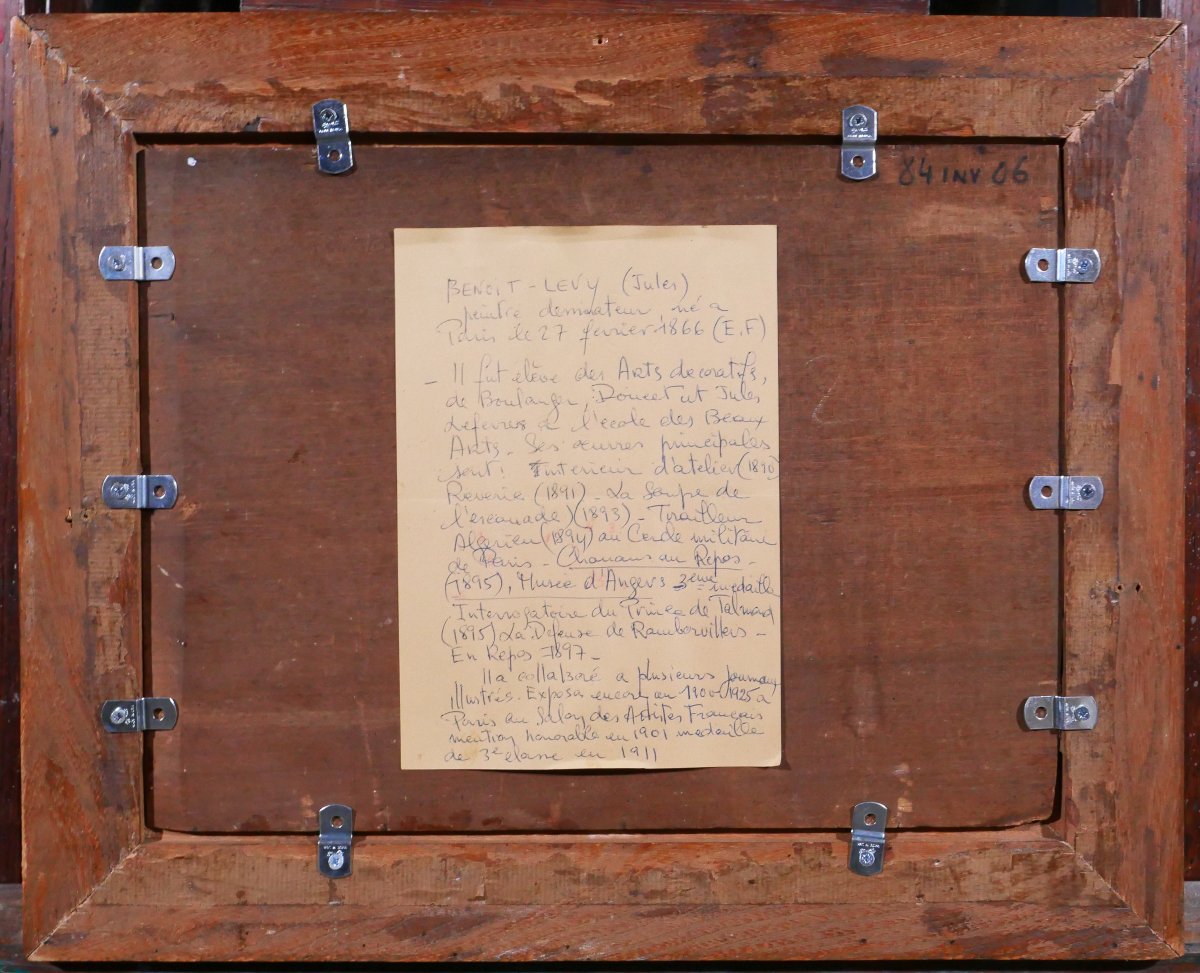 84 INV 06
BENOIT - LEVY (Jules)
peintre né a
Paris le 27 fevrier 1866 (E.F)
- Il fut élève des Arts decoratifs,
de Boulanger, Doucet et Jules
Lefevre a l'école des Beaux
Arts. Ses œuvres principales
sont: Interieur d'atelier (1890)
Reverie (1891) - La Soupe de
l'escouade) (1893) - Tirailleur
Algerien (1894) au Cercle militaire
de Paris - Chouans au Repos -
(1895), Musée d'Angers 3eme medaille
Interrogatoire du Prince de Talmond
(1895) La Defense de Rambervillers -
En Repos 1897 -
Il a collaboré a plusieurs journaux
illustrés. Exposa encore en 1900 1925 a
Paris au Salon des Artistes Français
mention honorable en 1901 medaille
de 3e classe en 1911